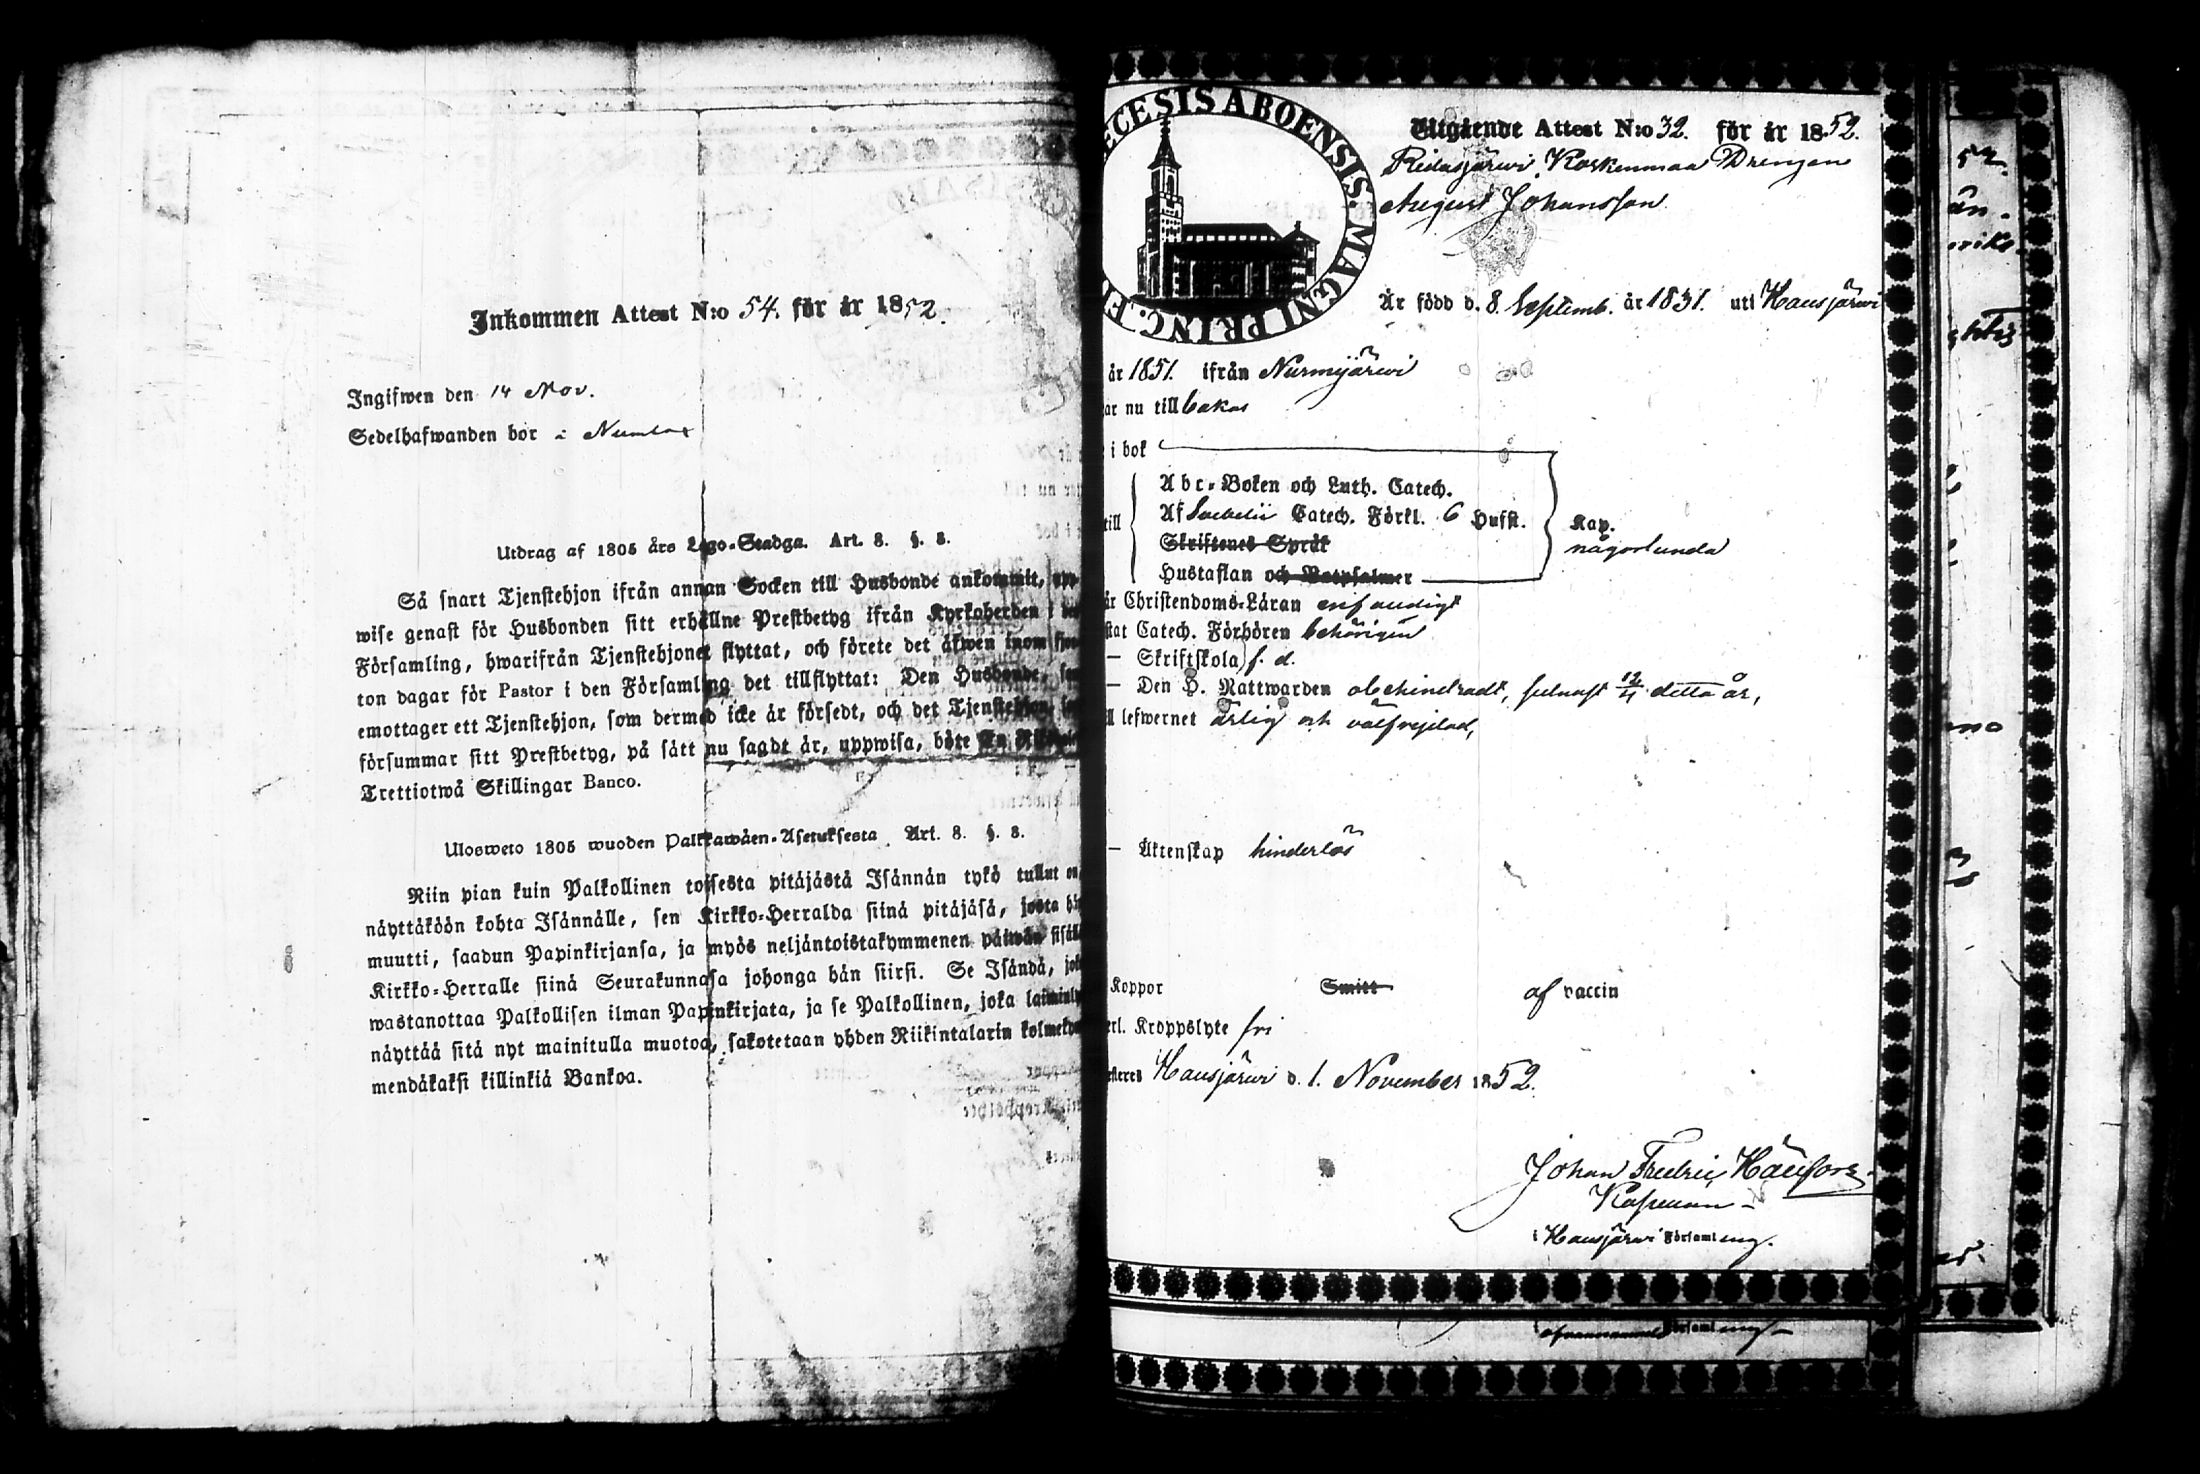 Inkommen Attest N:o 54. för år 1852.
Ingifwen den 14 Nov.
Sedelhafwanden bor i
Utdrag af 1805 års Lego-Stadga. Art. 8. §. 8.
Så snart Tjenstehjon ifrån annan Socken till Husbonde ankommit, upp-
wise genast för Husbonden sitt erhållne Prestbetyg ifrån Kyrkoherden i den
Församling, hwarifrån Tjenstehjonet flyttat, och förete det äfwen inom fjor-
ton dagar för Pastor i den Församling det tillflyttat: Den Husbonde, som
emottager ett Tjenstehjon, som dermed icke är försedt, och det Tjenstehjon, som
försummar sitt Prestbetyg, på sätt nu sagdt är, uppwisa, böte En Riksdaler
Trettiotwå Skillingar Banco.
Ulosweto 1805 wuoden Palkkawäen-Asetuksesta Art. 8. §. 8.
Niin pian kuin Palkollinen toisesta pitäjästä Isännän tykö tullut on,
näyttäköön kohta Isännälle, sen Kirkko-Herralda siinä pitäjäsä, josta hän
muutti, saadun Papinkirjansa, ja myös neljäntoistakymmenen päiwän sisällä
Kirkko-Herralle siinä Seurakunnasa johonga hän siirsi. Se Isändä, joka
wastanottaa Palkollisen ilman Papinkirjata, ja se Palkollinen, joka laiminlyö
näyttää sitä nyt mainitulla muotoa, sakotetaan yhden Riikintalarin kolmeky-
mendäkaksi killinkiä Bankoa.
ECESIS ABOENSIS. MAGNI PRINC. F
Utgående Attest N:o 32. för år 1852.
Ridasjärwi, Koskenmaa Drengen
August Johansson
Är född d. 8. Septemb. år 1831. uti Hausjärwi
år 1851. ifrån Nurmijärwi
ar nu tillbakas
i bok
Abc-Boken och Luth. Catech.
till Af Swebelii Catech. Förkl. 6 Hufst.
Skriftenes Språk
Hustaflan och Botpsalmer
Kap.
någorlunda
är Christendoms-Läran enfaudigt
stat Catech. Förhören behörigen
— Skriftskola f. d.
— Den H. Nattwarden obehindradt, senast 12/4 detta år,
ll lefwernet ärlig och välfrejdad,
— Äktenskap hinderlös
Koppor Smitt af vaccin
erl. Kroppslyte fri
esteres Hausjärwi d. 1. November 1852.
Johan Fredric
i Hausjärwi Församling.
Församling